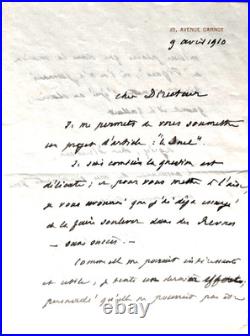 10, AVENUE CARNOT
9 avril 1910
Cher Directeur
Je me permets de vous soumettre
un projet d'article : "le Duel".
Je sais combien la question est
délicate ; et pour vous mettre à l'aise,
je vous avouerai que j'ai déjà essayé
de la faire soulever dans des Revues
— sans succès. —
Comme elle me paraît intéressante
et utile, je tente un dernier effort,
persuadé qu'elle ne pourrait pas